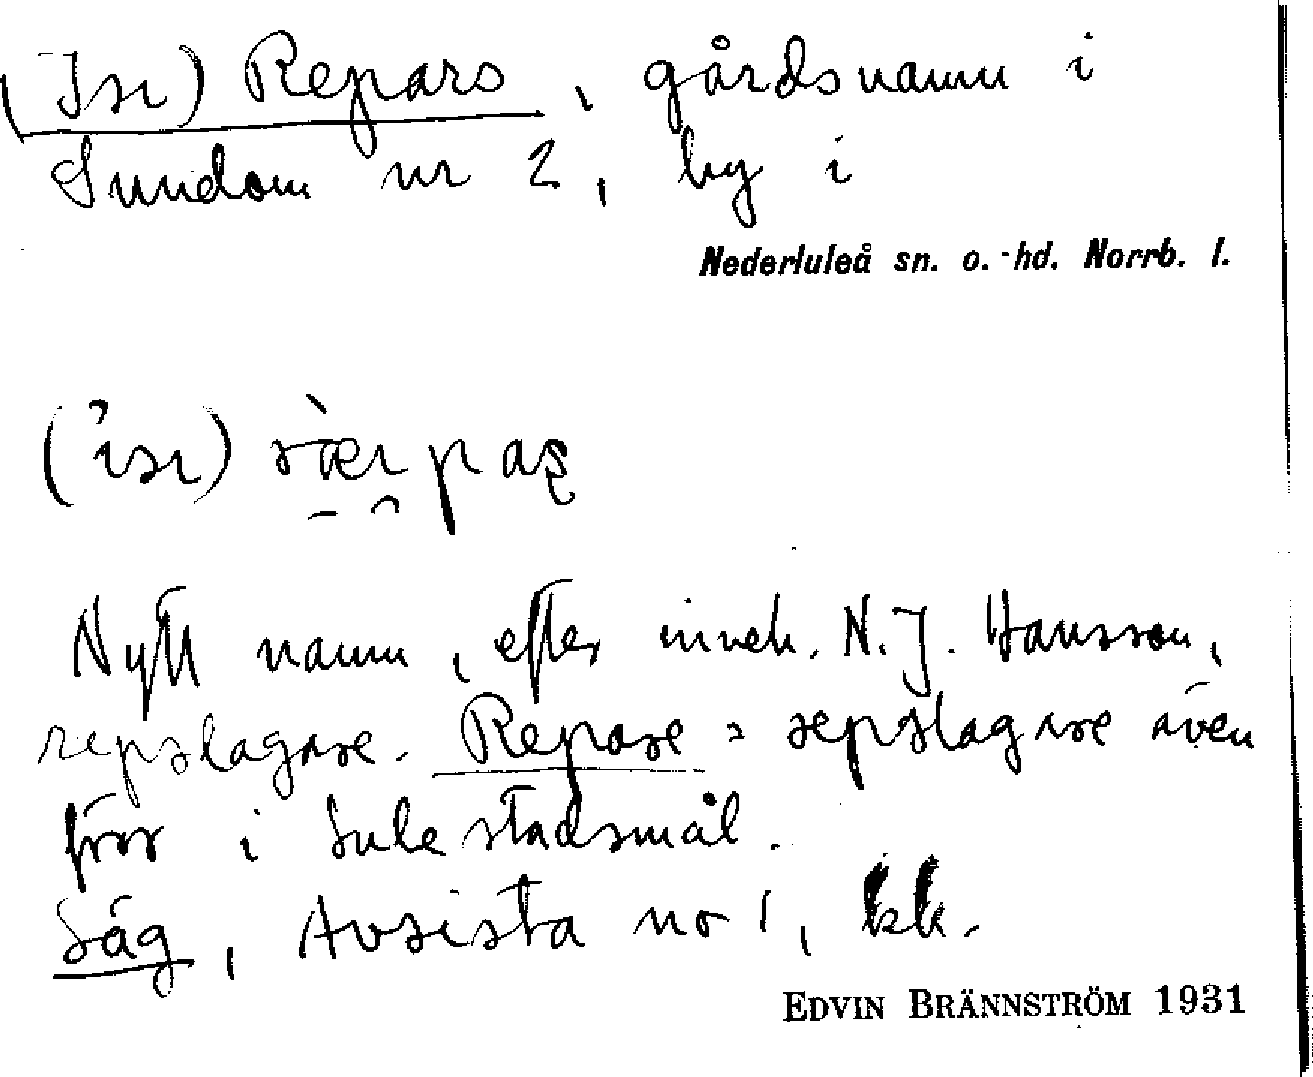 (Isr) Repars, gårdsnamn i
Sundom nr 2, by i
Nederluleå sn. o. -hd. Norrb. l.
Nytt namn, efter inneh. N. J. Hansson,
repslagare. Repare = repslagare även
förr i Lule stadsmål.
Säg, Avsista nr 1, kk.
EDVIN BRÄNNSTRÖM 1931